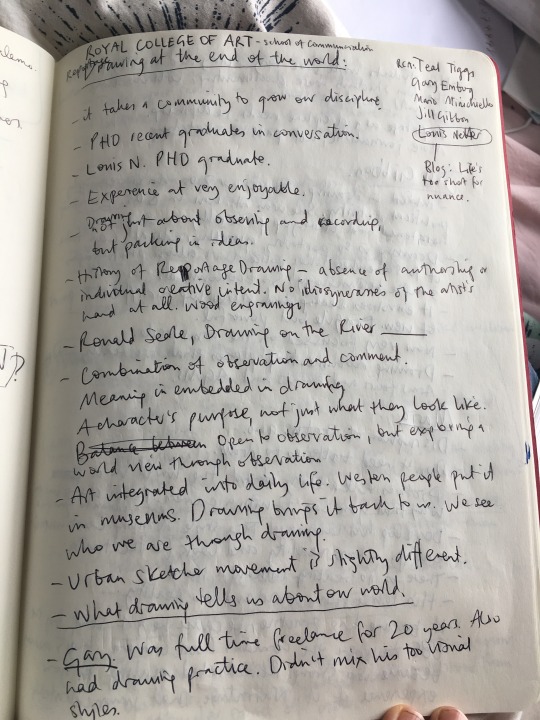 ROYAL COLLEGE OF ART - School of Communication
Reportage Drawing at the end of the world:
Teal Triggs
Gary Embury
Mario Minichiello
Jill Gibbon
Louis Netter
Blog: Life's
too short for
nuance.
- it takes a community to grow our discipline
- PHD recent graduates in conversation.
- Louis N. PHD graduate.
- Experience at very enjoyable.
- Drawing
not just about observing and recording,
but packing in ideas.
- History of Reportage Drawing - absence of authorship or
individual creative intent. No idiosyncrasies of the artist's
hand at all. Wood engravings
- Ronald Searle, Drawing on the River
- Combination of observation and comment.
Meaning is embedded in drawing
A character's purpose, not just what they look like.
Balance between Open to observation, but exploring a
world view through observation
- Art integrated into daily life. Western people put it
in museums. Drawing brings it back to us. We see
who we are through drawing.
- Urban Sketcher movement is slightly different.
- What drawing tells us about our world.
- Gary. Was full time freelance for 20 years. Also
had drawing practice. Didn't mix his two visual
styles.